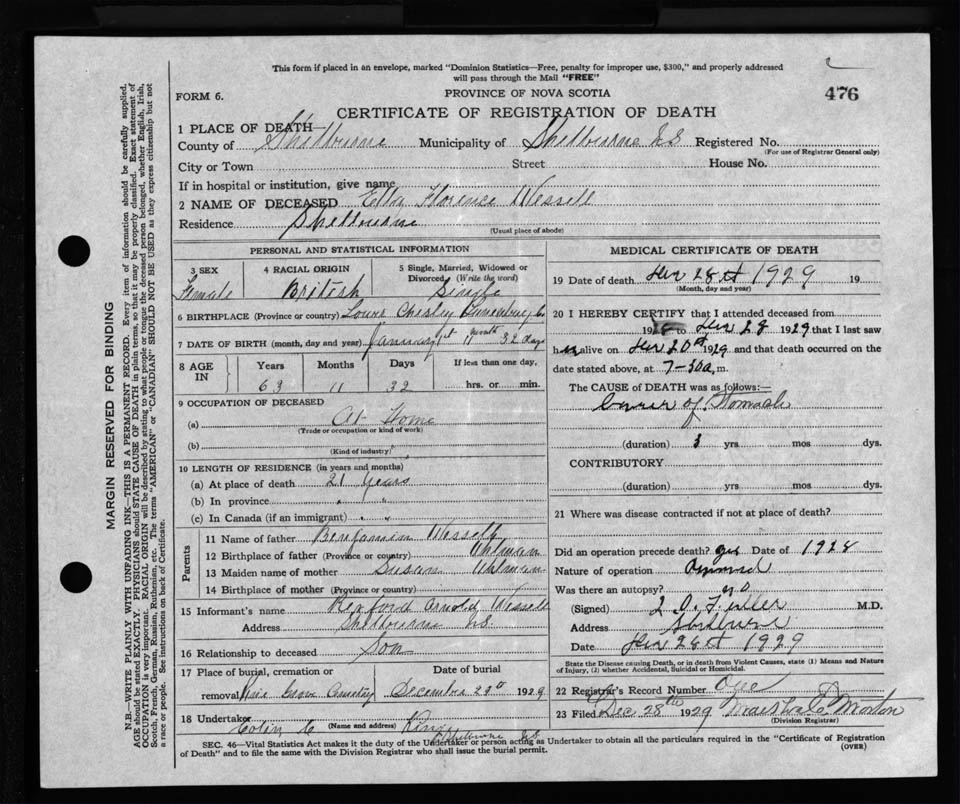 This form if placed in an envelope, marked "Dominion Statistics—Free, penalty for improper use, $300," and properly addressed
will pass through the Mail "FREE"
FORM 6.
PROVINCE OF NOVA SCOTIA
476
CERTIFICATE OF REGISTRATION OF DEATH
1 PLACE OF DEATH—
County of Shelburne Municipality of Shelburne N.S Registered No.
(For use of Registrar General only)
City or Town Street House No.
If in hospital or institution, give name
2 NAME OF DECEASED Ella Florence Wessell
Residence Shelburne
(Usual place of abode)
PERSONAL AND STATISTICAL INFORMATION
3 SEX 4 RACIAL ORIGIN 5 Single, Married, Widowed or
Divorced. (Write the word)
Female British Single
6 BIRTHPLACE (Province or country) Chesley Lunenburg Co
7 DATE OF BIRTH (month, day and year) January 1st 11 month 32 days
8 AGE IN Years Months Days If less than one day,
63 11 32 hrs. or min.
9 OCCUPATION OF DECEASED
(a) At Home
(Trade or occupation or kind of work)
(b)
(Kind of industry)
10 LENGTH OF RESIDENCE (in years and months)
(a) At place of death 21 years
(b) In province " "
(c) In Canada (if an immigrant) " "
Parents
11 Name of father Benjamin Wessell
12 Birthplace of father (Province or country)
13 Maiden name of mother Susan Uhlman
14 Birthplace of mother (Province or country)
15 Informant's name Arnold Wessell
Address Shelbourne N.S.
16 Relationship to deceased Son
17 Place of burial, cremation or Date of burial
removal Pine Grove Cemetery December 29th 1929
18 Undertaker Colin C
(Name and address)
Shelbourne N.S
MEDICAL CERTIFICATE OF DEATH
19 Date of death Dec 28th 1929 19
(Month, day and year)
20 I HEREBY CERTIFY that I attended deceased from
1928 to Dec 28 1929 that I last saw
her alive on Dec 20th 1929 and that death occurred on
date stated above, at 7-30a. m.
The CAUSE of DEATH was as follows:—
Cancer of Stomach
(duration) 1 yrs mos dys.
CONTRIBUTORY
(duration) yrs mos dys.
21 Where was disease contracted if not at place of death?
Did an operation precede death? yes Date of 1928
Nature of operation
Was there an autopsy? no
(Signed) Fuller M.D.
Address Shelburne
Date Dec 28th 1929
State the Disease causing Death, or in death from Violent Causes, state (1) Means and Nature
of Injury, (2) whether Accidental, Suicidal or Homicidal.
22 Registrar's Record Number
23 Filed Dec 28th 1929 Morton
(Division Registrar)
SEC. 46—Vital Statistics Act makes it the duty of the Undertaker or person acting as Undertaker to obtain all the particulars required in the "Certificate of Registration
of Death" and to file the same with the Division Registrar who shall issue the burial permit.
(OVER)
MARGIN RESERVED FOR BINDING
N.B.—WRITE PLAINLY WITH UNFADING INK—THIS IS A PERMANENT RECORD. Every item of information should be carefully supplied.
AGE should be stated EXACTLY. PHYSICIANS should STATE CAUSE OF DEATH in plain terms, so that it may be properly classified. Exact statement of
OCCUPATION is very important. RACIAL ORIGIN will be described by stating to what people or tongue the deceased person belonged, whether English, Irish,
Scotch, French, German, Russian, Ruthenian, etc. The terms "AMERICAN" or "CANADIAN" SHOULD NOT BE USED as they express citizenship but not
a race or people. See instructions on back of Certificate.